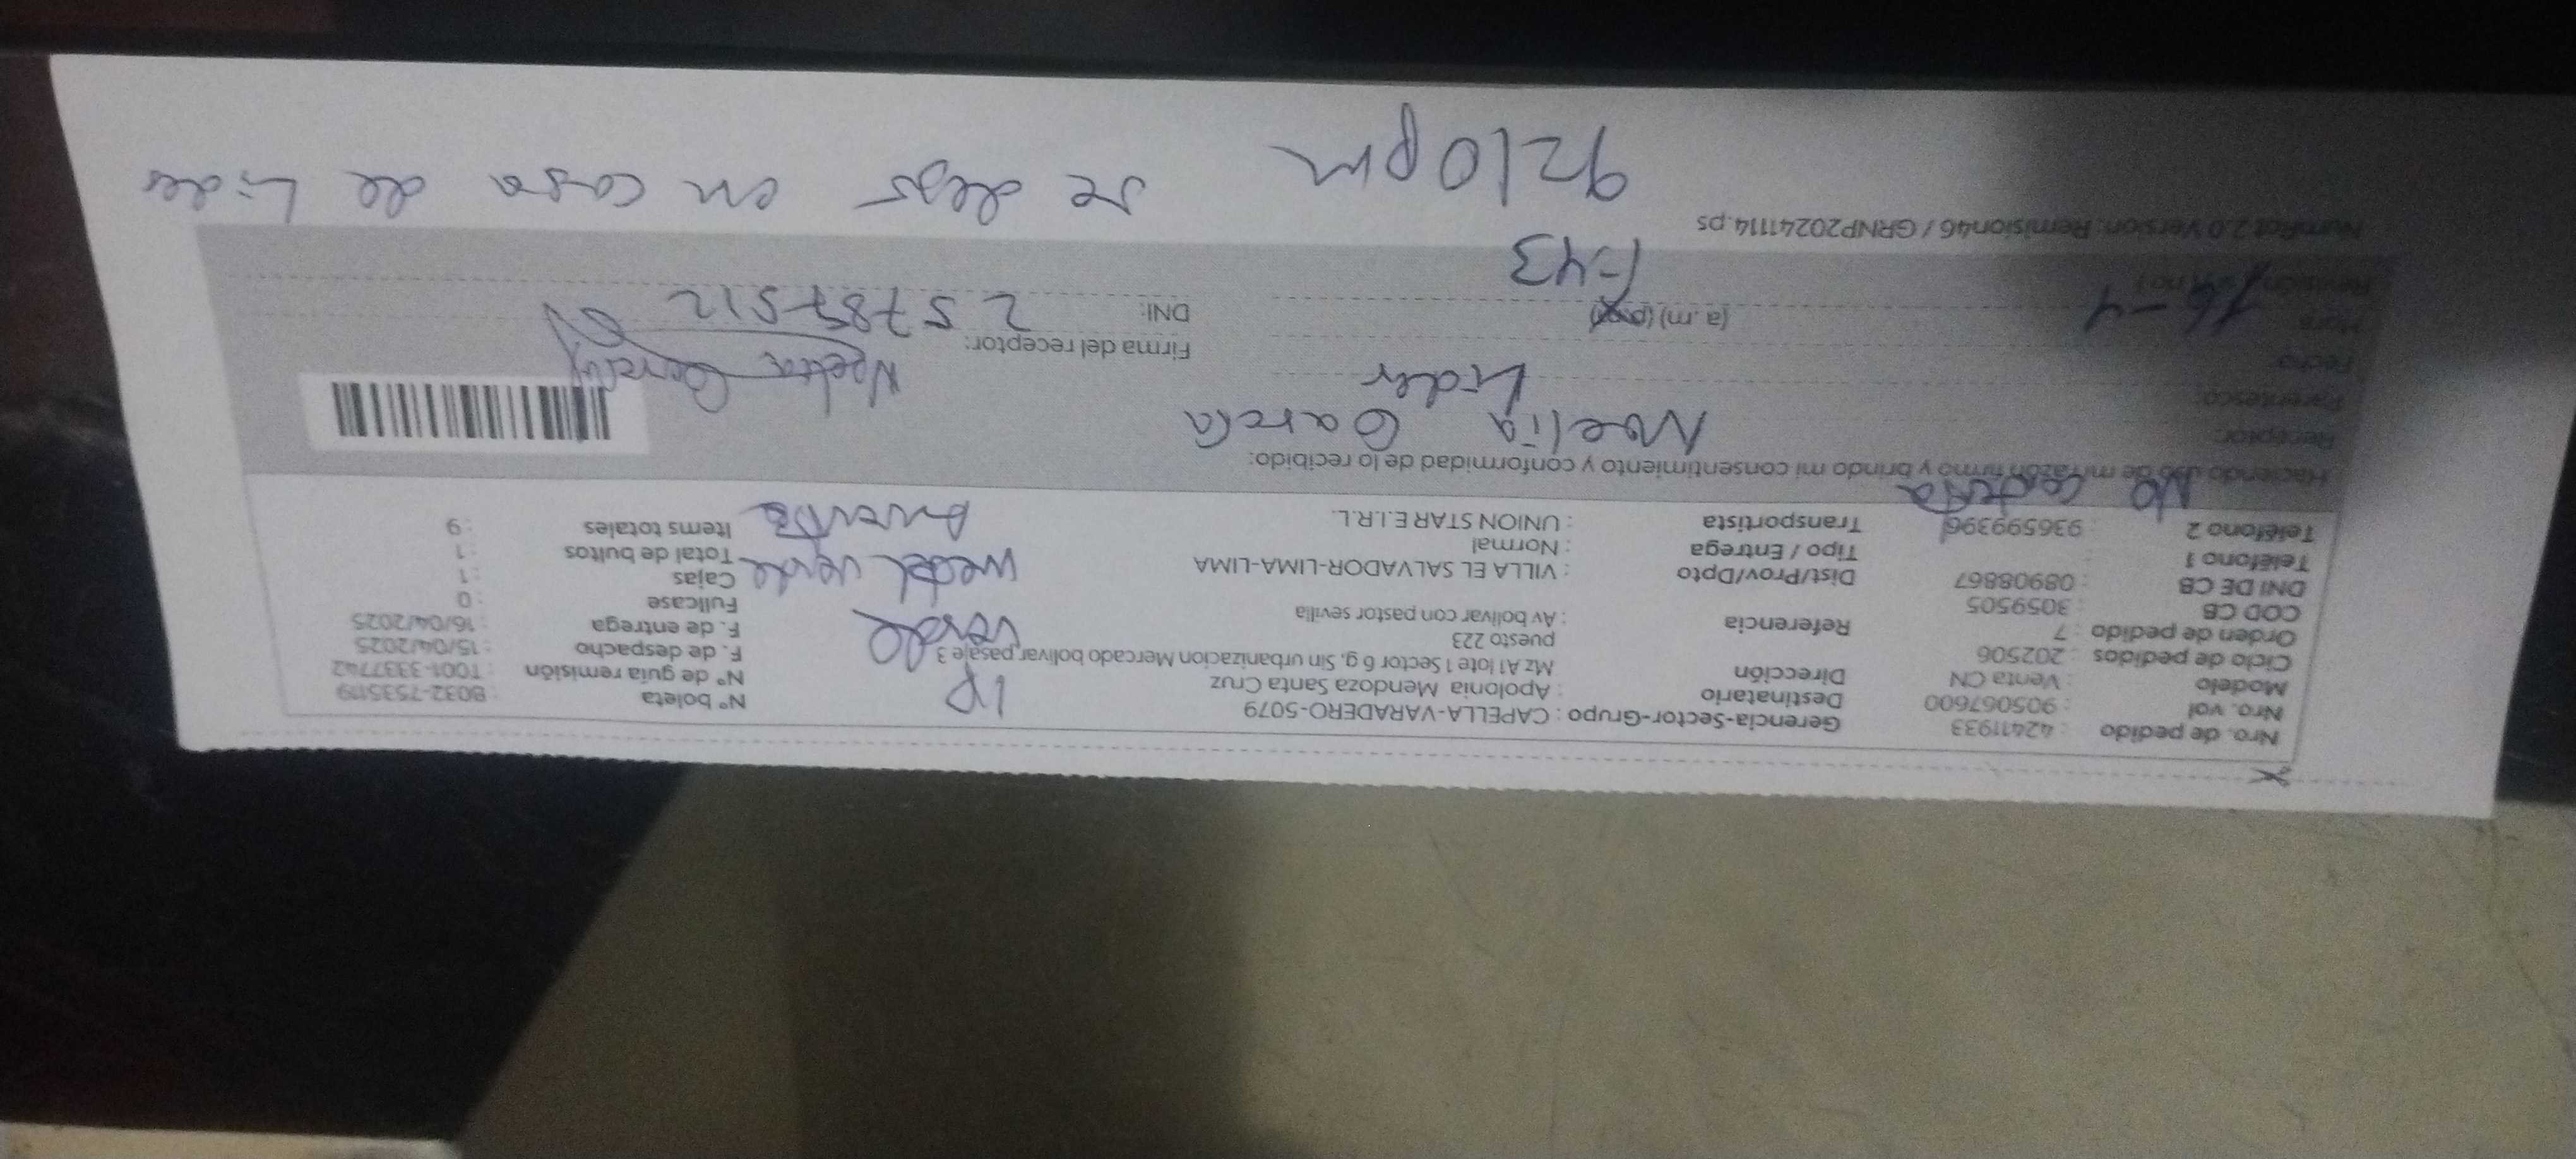 Nro. de pedido : 42411933
Nro. vol : 905067600
Modelo : Venta CN
Ciclo de pedidos : 202506
Orden de pedido : 7
COD CB : 3059505
DNI DE CB : 08908867
Teléfono 1 :
Teléfono 2 : 936599396
NO contesta
Gerencia-Sector-Grupo : CAPELLA-VARADERO-5079
Destinatario : Apolonia Mendoza Santa Cruz
Dirección : Mz A1 lote 1 Sector 6 g, Sin urbanizacion Mercado bolivar pasaje 3
puesto 223
Referencia : Av bolivar con pastor sevilla
Dist/Prov/Dpto : VILLA EL SALVADOR-LIMA-LIMA
Tipo / Entrega : Normal
Transportista : UNION STAR E.I.R.L.
1P
verde
verde
Nº boleta : B032-7535119
Nº de guía remisión : T001-3337742
F. de despacho : 15/04/2025
F. de entrega : 16/04/2025
Fullcase : 0
Cajas : 1
Total de bultos : 1
Items totales : 9
Haciendo uso de mi razón firmo y brindo mi consentimiento y conformidad de lo recibido:
Receptor: Noelia Garcia
Parentesco: Lider
Fecha: 16-4
Hora: (a.m) (p.m)
F-43
Firma del receptor:
DNI: 25787512
NumRot 2.0 Version: Remision46 / GRNP20241114.ps
9210pm
se dejo en casa de Lider